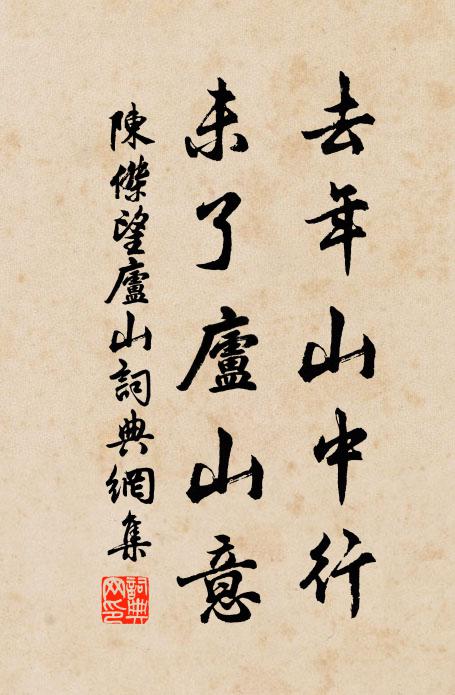 去年山中行
未了廬山意
陳傑望廬山詞典網集